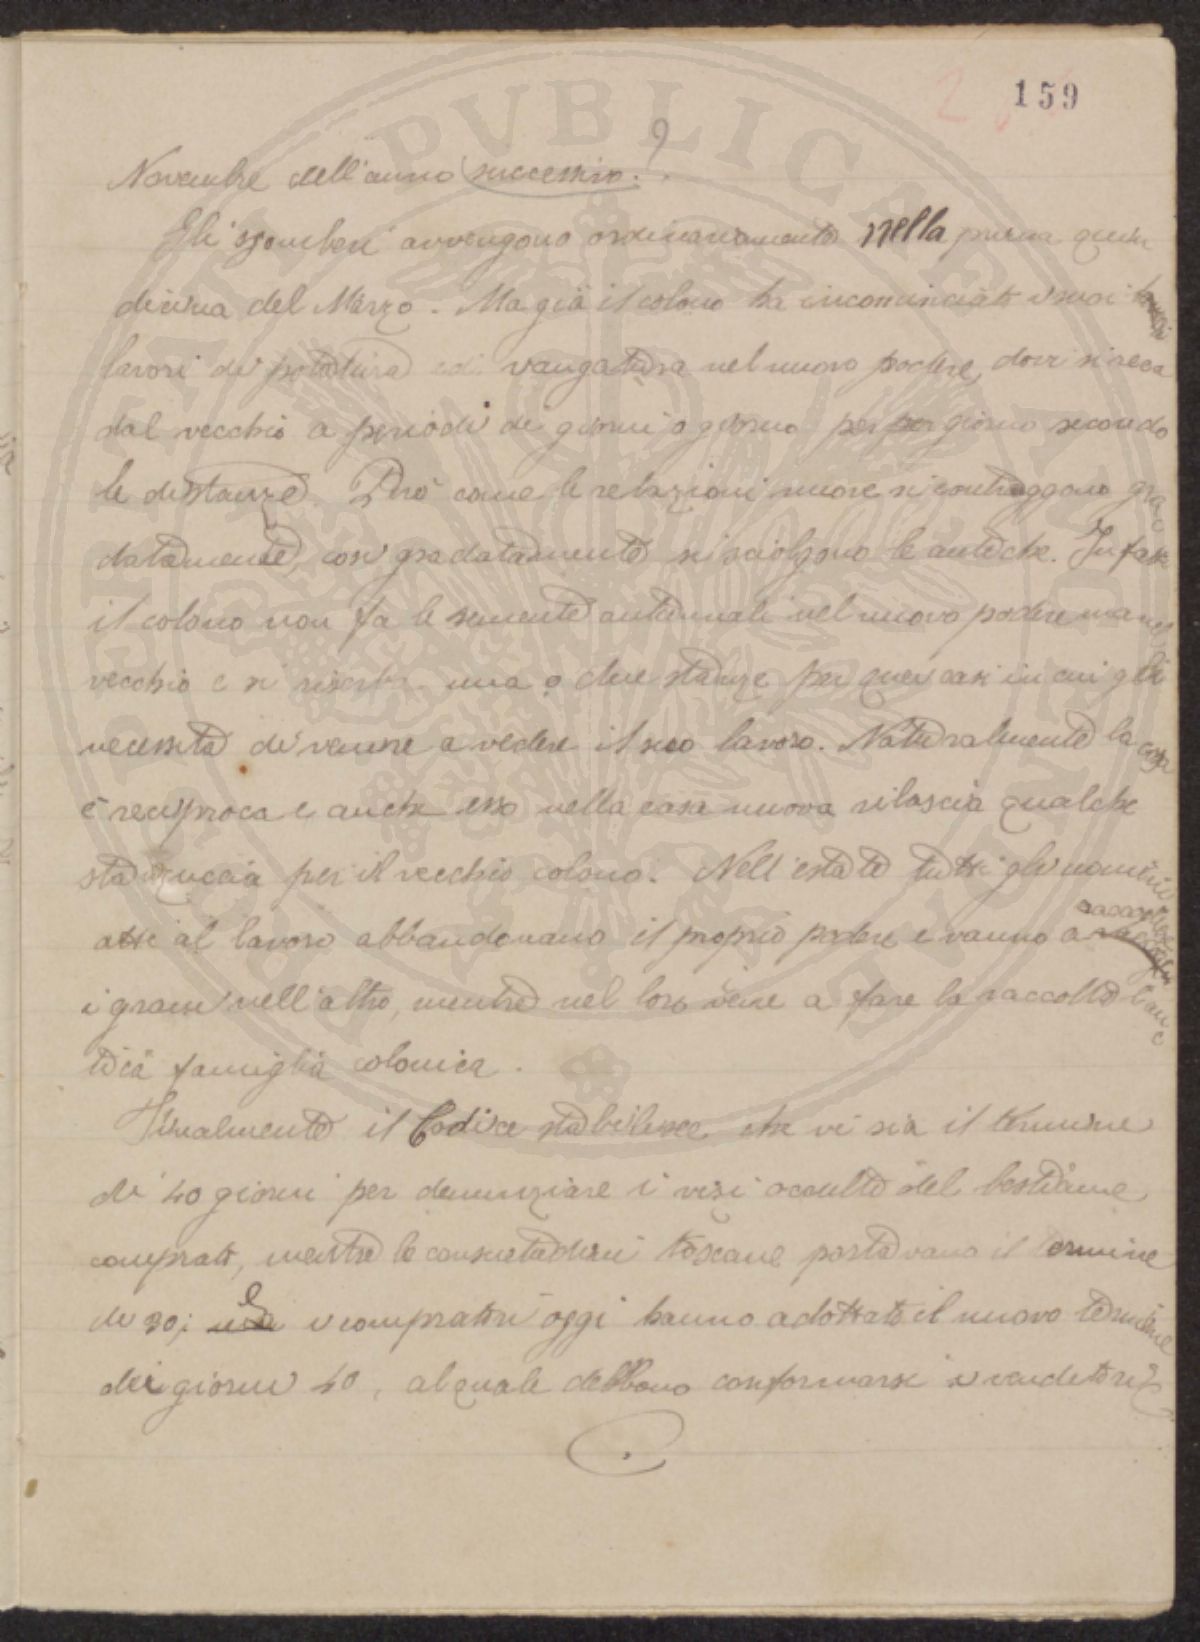 159
Novembre dell'anno successivo. ?
Gli sgomberi avvengono ordinariamente nella prima quin
dicina del Marzo. Ma già il colono ha incominciato i suoi
lavori di potatura ed vangatura nel nuovo podere, dove si reca
dal vecchio a periodi di giorni o giorno per per giorno secondo
le distanze. Però come le relazioni nuove si contraggono gra
datamente, così gradatamente si sciolgono le antiche. Infatti
il colono non fa le semente autunnali nel nuovo podere ma nel
vecchio e si riserba una o due stanze per quei casi in cui gli
necessita di venire a vedere il suo lavoro. Naturalmente la cosa
è reciproca e anche esso nella casa nuova rilascia qualche
stanzuccia per il vecchio colono. Nell'estate tutti gli uomini
atti al lavoro abbandonano il proprio podere e vanno a raccogliere
i grani nell'altro, mentre nel loro viene a fare la raccolta l'an
tica famiglia colonica.
Finalmente il Codice stabilisce che vi sia il termine
di 40 giorni per denunziare i vizi occulti del bestiame
comprato, mentre le consuetudini toscane portavano il termine
di 30; e i compratori oggi hanno adottato il nuovo termine
dei giorni 40, al quale debbono conformarsi i venditori